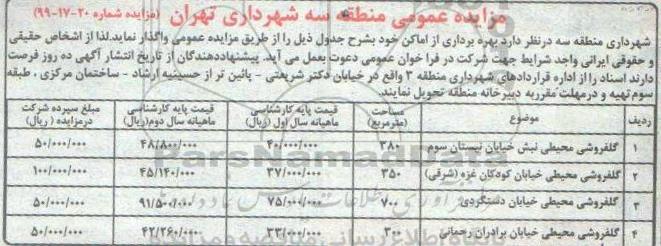 مزایده عمومی منطقه سه شهرداری تهران (مزایده شماره ۲۰-۱۷-۹۹)
شهرداری منطقه سه درنظر دارد بهره برداری از اماکن خود بشرح جدول ذیل را از طریق مزایده عمومی واگذار نماید.لذا از اشخاص حقیقی
و حقوقی ایرانی واجد شرایط جهت شرکت در فرا خوان عمومی دعوت بعمل می آید. پیشنهاددهندگان از تاریخ انتشار آگهی ده روز فرصت
دارند اسناد را از اداره قراردادهای شهرداری منطقه ۳ واقع در خیابان دکتر شریعتی - پائین تر از حسینیه ارشاد - ساختمان مرکزی ، طبقه
سوم تهیه و درمهلت مقرربه دبیرخانه منطقه تحویل نمایند.
ردیف موضوع مساحت (مترمربع) قیمت پایه کارشناسی ماهیانه سال اول (ریال) قیمت پایه کارشناسی ماهیانه سال دوم(ریال) مبلغ سپرده شرکت درمزایده ( ریال)
۱ گلفروشی محیطی نبش خیابان نیستان سوم ۳۸۰ ۴۰/۰۰۰/۰۰۰ ۴۸/۸۰۰/۰۰۰ ۵۰/۰۰۰/۰۰۰
۲ گلفروشی محیطی خیابان کودکان غزه (شرقی) ۳۵۰ ۳۷/۰۰۰/۰۰۰ ۴۵/۱۴۰/۰۰۰ ۱۰۰/۰۰۰/۰۰۰
۳ گلفروشی محیطی خیابان دستگردی ۷۰۰ ۷۵/۰۰۰/۰۰۰ ۹۱/۵۰۰/۰۰۰ ۵۰/۰۰۰/۰۰۰
۴ گلفروشی محیطی خیابان برادران رحمانی ۳۰۰ ۳۳/۰۰۰/۰۰۰ ۴۲/۲۶۰/۰۰۰ ۵۰/۰۰۰/۰۰۰
ParsNamadData